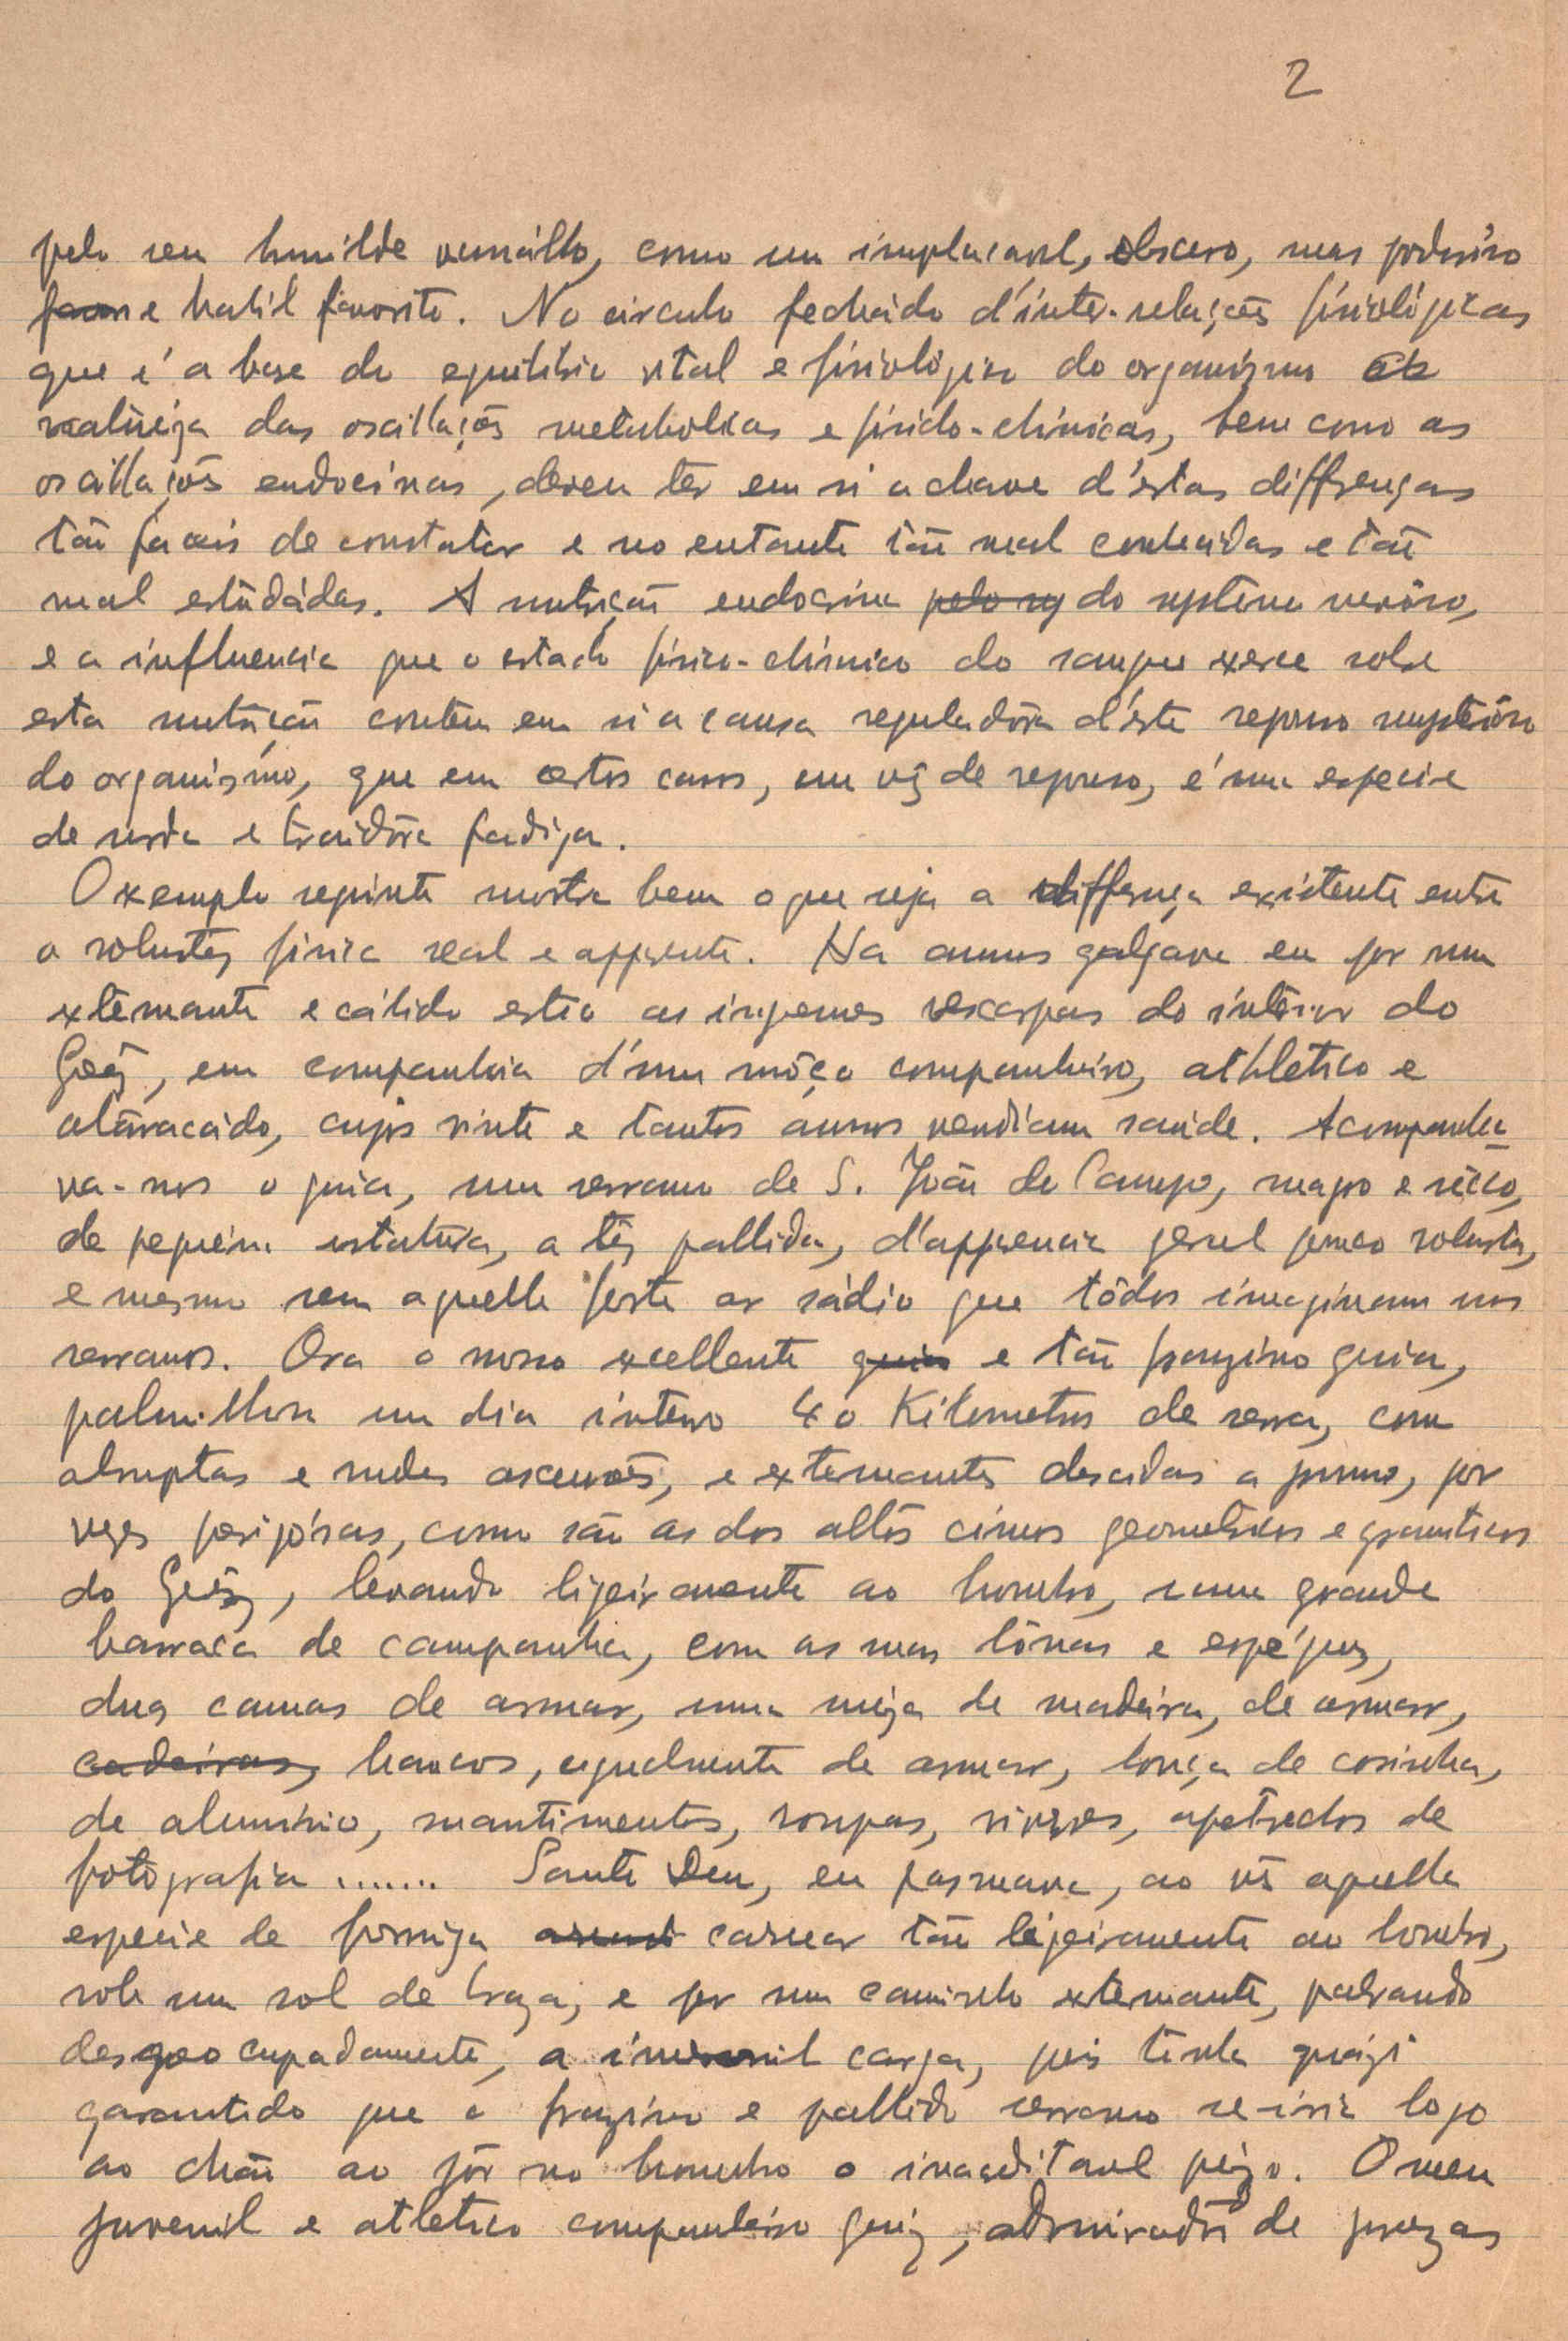 2
pelo seu humilde vassállo, como um implacavel, obscuro, mas poderoso
e habil favorito. No circulo fechado d'inter-relações fisiológicas
que é a base do equilibrio vital e fisiológico do organismo a
realêza das oscillações metabolicas e fisico-chimicas, bem como as
oscillações endocrinas, devem ter em si a chave d'estas differenças
tão faceis de constatar e no entanto tão mal conhecidas e tão
mal estudádas. A nutrição endocrina pelo sy do systema nervôso,
e a influencia que o estado fisico-chimico do sangue exerce sobre
esta nutrição contem em si a causa reguladôra d'este reposo mysterioso
do organismo, que em certos casos, em vêz de reposo, é uma especie
de surda e traidôra fadiga.
O exemplo seguinte mostra bem o que seja a differença existente entre
a robustêz fisica real e apparente. Ha annos galgava eu por um
extenuante e cálido estio as ingremes escarpas do interior do
Gerêz, em companhia d'um môço companheiro, athletico e
atarracado, cujos vinte e tantos annos vendiam saude. Acompanha-
va-nos o guia, um serrano de S. João do Campo, magro e sêcco,
de pequena estatura, a têz pallida, d'apparencia geral pouco robusta,
e mesmo sem aquelle forte ar sádio que tôdos imaginam nos
serranos. Ora o nosso excellente guia e tão franzino guia,
palmilhou um dia inteiro 40 Kilometros de serra, com
abruptas e rudes ascensões, e extenuantes descidas a prumo, por
vezes perigósas, como são as dos altos cimos geometricos e graniticos
do Gerêz, levando ligeiramente ao hombro, uma grande
barraca de campanha, com as suas lônas e espéques,
duas camas de armar, uma mêza de madeira, de armar,
cadeiras, bancos, egualmente de armar, louça de cosinha,
de aluminio, mantimentos, roupas, viveres, apetrechos de
fotografia ....... Santo Deus, eu pasmava, ao vêr aquella
especie de formiga carregar tão ligeiramente ao hombro,
sob um sol de braza, e por um caminho extenuante, palrando
despreocupadamente, a carga, pois tinha quázi
garantido que o franzino e pallido serrano se-iria logo
ao chão ao pôr no hombro o inacreditavel pêzo. O meu
juvenil e atletico companheiro quiz, admiradôr de proezas